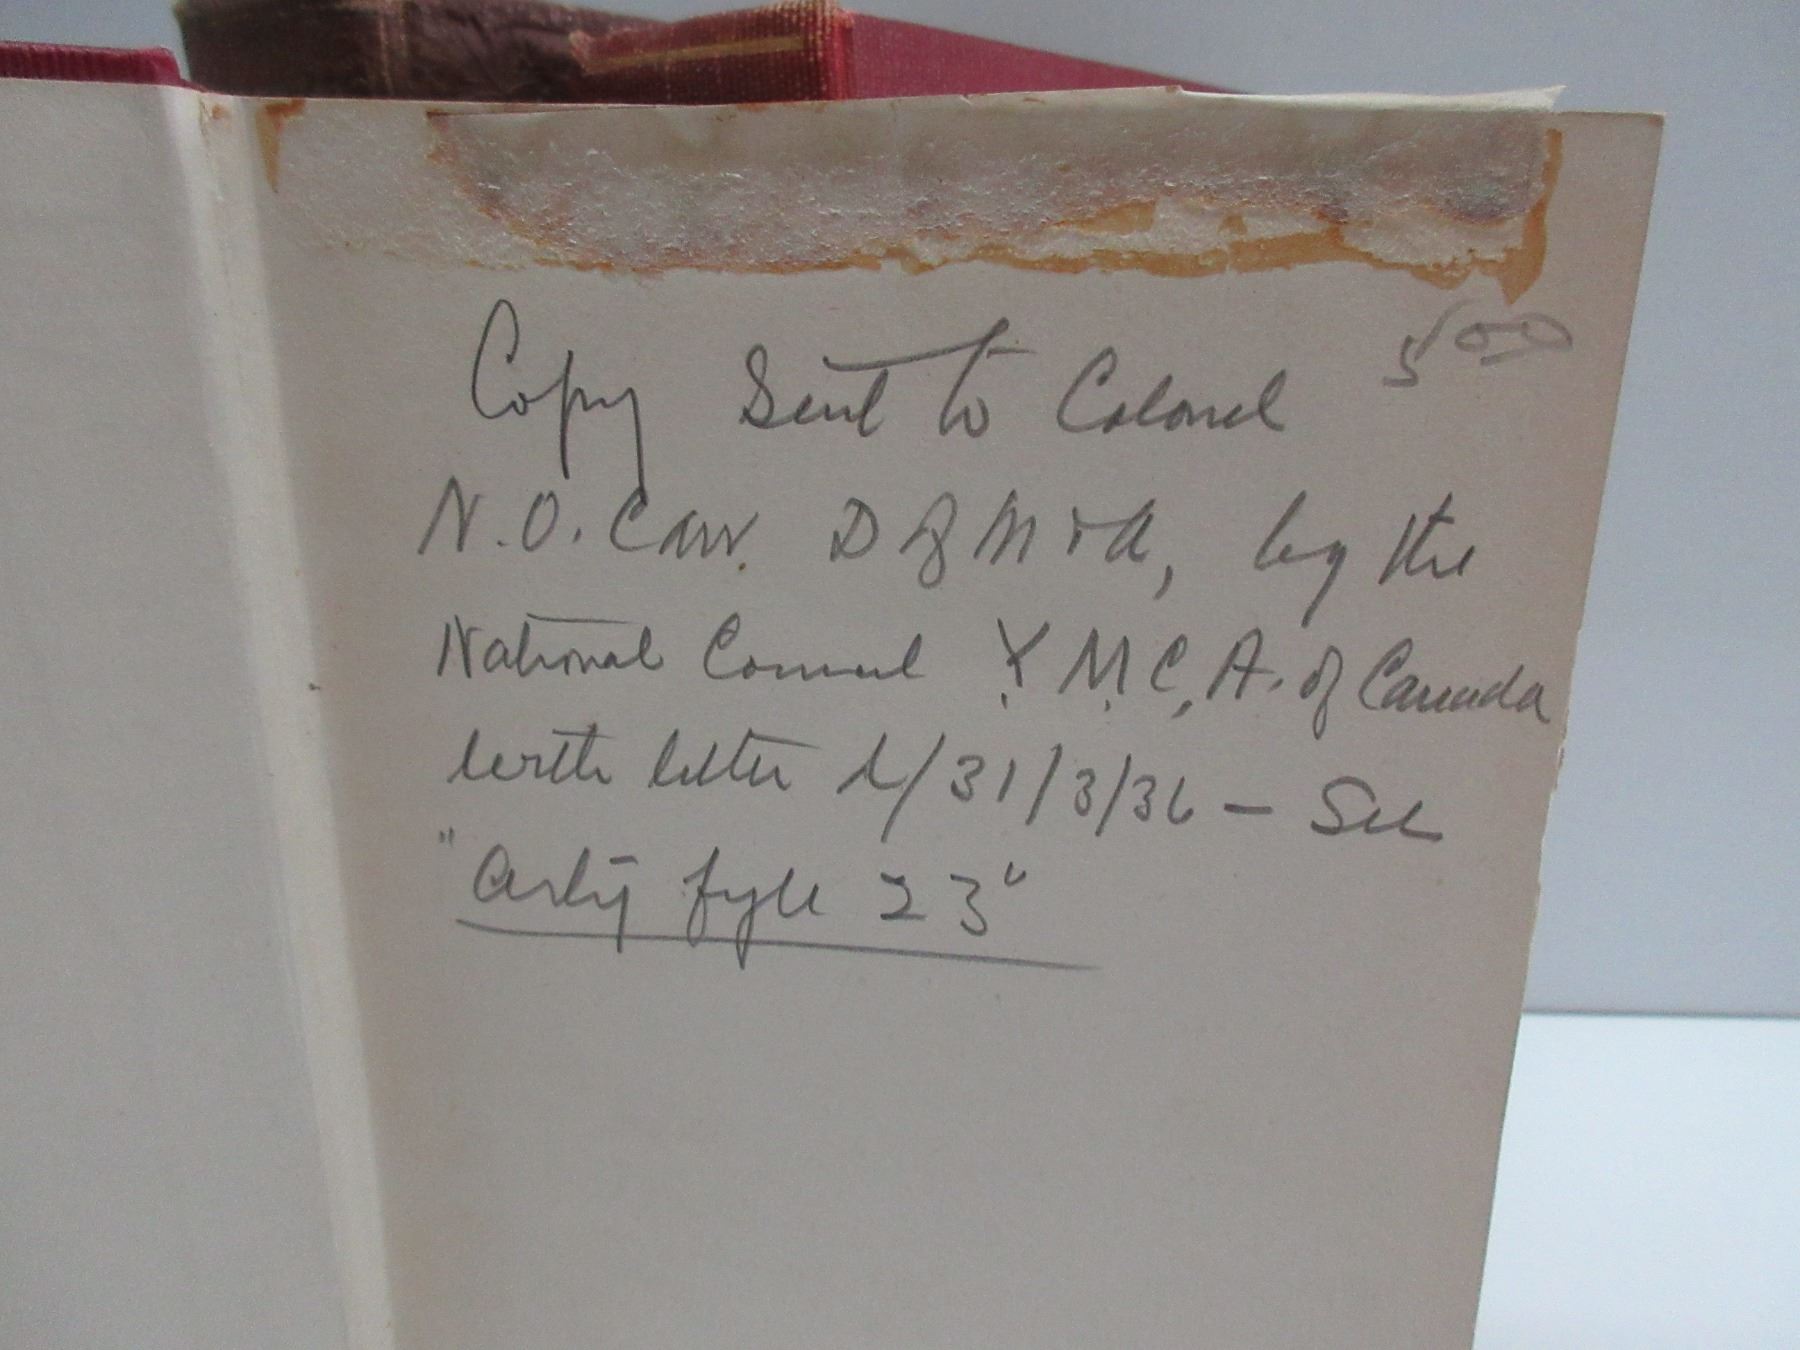 Copy Sent to Colonel
5 00
N.O. Carr. D of M & A, by the
National Council Y.M.C.A. of Canada
with letter d/31/3/36 - See
"Arty fyle 23"